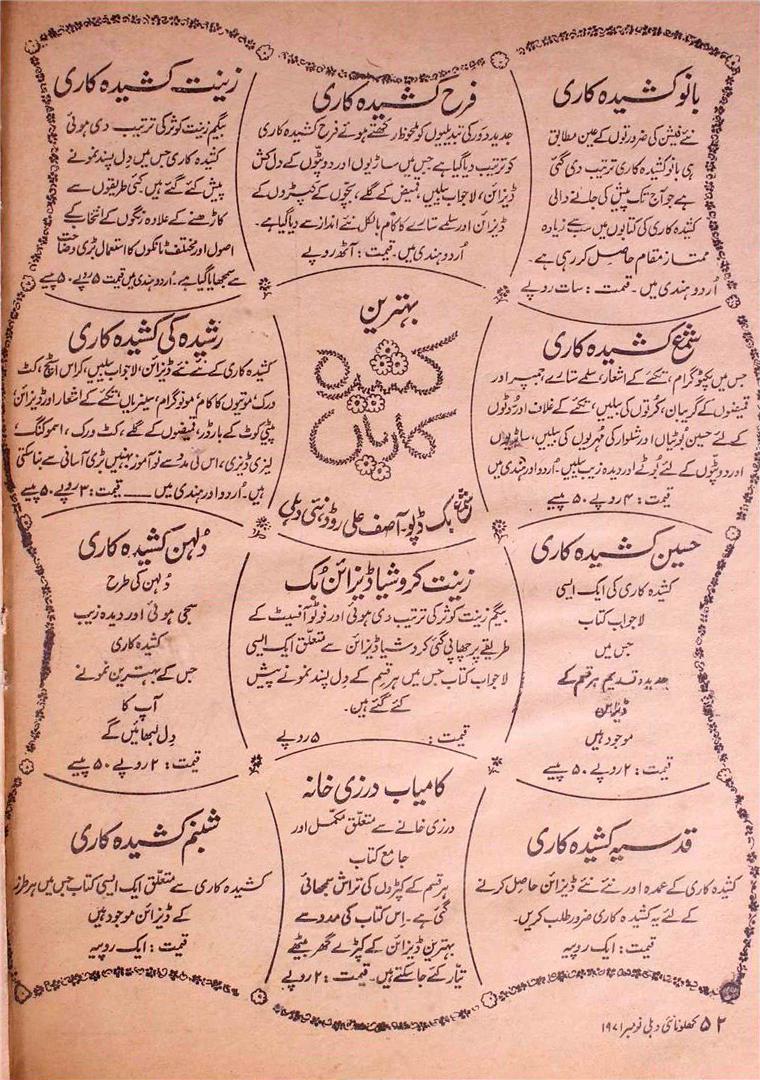 بانو کشیدہ کاری
نئے فیشن کی ضرورتوں کے عین مطابق
ہی بانو کشیدہ کاری ترتیب دی گئی
ہے جو آج تک پیش کی جانے والی
کشیدہ کاری کی کتابوں میں سب سے زیادہ
ممتاز مقام حاصل کر رہی ہے۔
اُردو ہندی میں۔ قیمت: سات روپے
فرح کشیدہ کاری
جدید دور کی تبدیلیوں کو ملحوظ رکھتے ہوئے فرح کشیدہ کاری
کو ترتیب دیا گیا ہے جس میں ساڑیوں اور دوپٹوں کے دل کش
ڈیزائن، لاجواب بیلیں، قمیض کے گلے، بچوں کے کپڑوں کے
ڈیزائن اور سلمے ستارے کا کام بالکل نئے انداز سے دیا گیا ہے۔
اُردو ہندی میں۔ قیمت: آٹھ روپے
زینت کشیدہ کاری
بیگم زینت کوثر کی ترتیب دی ہوئی
کشیدہ کاری جس میں دل پسند نمونے
پیش کئے گئے ہیں کئی طریقوں سے
کاڑھنے کے علاوہ رنگوں کے انتخاب کے
اصول اور مختلف ٹانکوں کا استعمال بڑی وضاحت
سے سمجھایا گیا ہے۔ اُردو ہندی میں قیمت ۵ روپے ۵۰ پیسے
شمع کشیدہ کاری
جس میں پکٹوگرام، تکئے کے اشعار، سلمے ستارے، جمپر اور
قمیضوں کے گریبان، کُرتوں کی بیلیں، تکئے کے غلاف اور
کے لئے حسین بُوٹیاں اور شلوار کی مہریوں کی بیلیں، ساڑیوں
اور دوپٹوں کے لئے بُوٹے اور دیدہ زیب بیلیں۔ اُردو اور ہندی میں
قیمت: ۴ روپے ۵۰ پیسے
بہترین
کشیدہ
کاریاں
شمع بک ڈپو۔ آصف علی روڈ، نئی دہلی
رشیدہ کی کشیدہ کاری
کشیدہ کاری کے نئے نئے ڈیزائن، لاجواب بیلیں، کراس اسٹچ، کٹ
ورک، موتیوں کا کام، مونوگرام، سینریاں، تکئے کے اشعار اور ڈیزائن،
پیٹی کوٹ کے بارڈر، قمیضوں کے گلے، کٹ ورک، اسموکنگ،
لیزی ڈیزی، اس کی مدد سے نوآموز بہنیں بڑی آسانی سے بنا سکتی
ہیں۔ اُردو اور ہندی میں ــــ قیمت: ۳ روپے ۵۰ پیسے
حسین کشیدہ کاری
کشیدہ کاری کی ایک ایسی
لاجواب کتاب
جس میں
جدید و قدیم ہر قسم کے
ڈیزائن
موجود ہیں
قیمت: ۲ روپے ۵۰ پیسے
زینت کروشیا ڈیزائن بُک
بیگم زینت کوثر کی ترتیب دی ہوئی اور فوٹو آفسیٹ کے
طریقے پر چھاپی گئی کروشیا ڈیزائن سے متعلق ایک ایسی
لاجواب کتاب جس میں ہر قسم کے دل پسند نمونے پیش
کئے گئے ہیں۔
قیمت: ۵ روپے
دُلہن کشیدہ کاری
دُلہن کی طرح
سجی ہوئی اور دیدہ زیب
کشیدہ کاری
جس کے بہترین نمونے
آپ کا
دل لبھائیں گے
قیمت: ۲ روپے ۵۰ پیسے
قدسیہ کشیدہ کاری
کشیدہ کاری کے عمدہ اور نئے نئے ڈیزائن حاصل کرنے
کے لئے یہ کشیدہ کاری ضرور طلب کریں۔
قیمت: ایک روپیہ
کامیاب درزی خانہ
درزی خانے سے متعلق مکمل اور
جامع کتاب
ہر قسم کے کپڑوں کی تراش سمجھائی
گئی ہے۔ اس کتاب کی مدد سے
بہترین ڈیزائن کے کپڑے گھر بیٹھے
تیار کئے جاسکتے ہیں۔ قیمت: ۲ روپے
شبنم کشیدہ کاری
کشیدہ کاری سے متعلق ایک ایسی کتاب جس میں ہر طرز
کے ڈیزائن موجود ہیں
قیمت: ایک روپیہ
۵۲ کھلونا نئی دہلی نومبر ۱۹۷۱